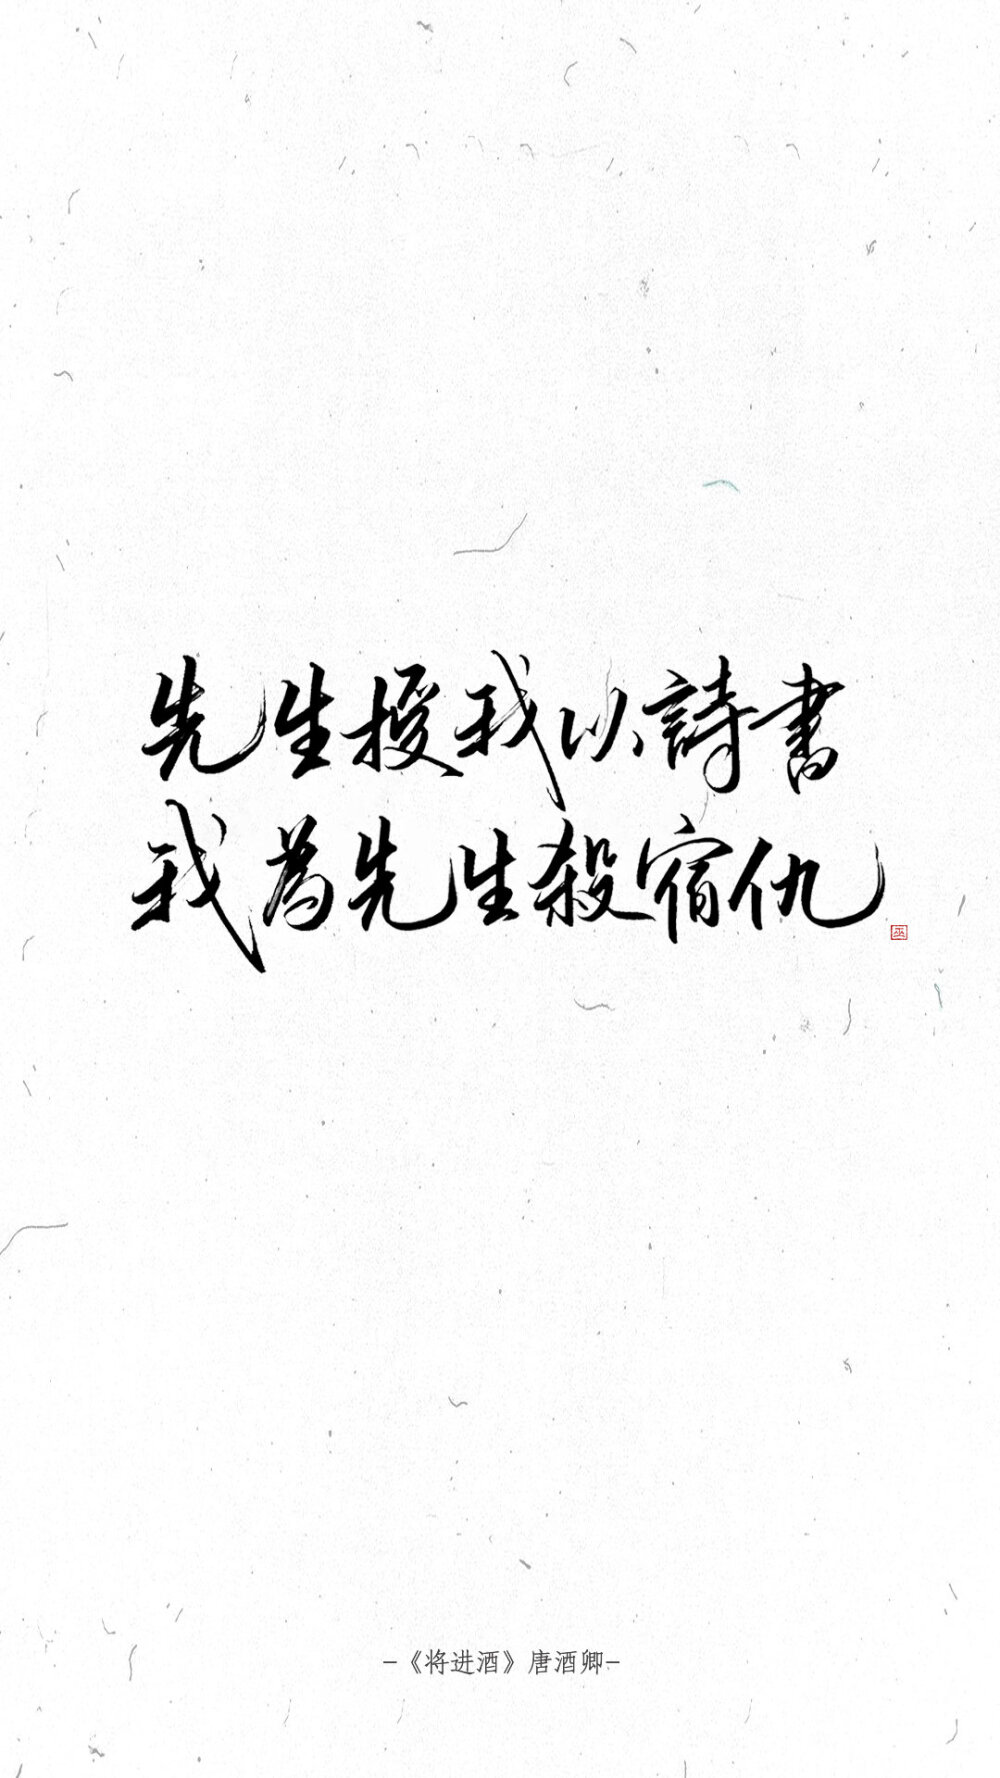 先生授我以詩書
我為先生殺宿仇
巫
-《将进酒》唐酒卿-